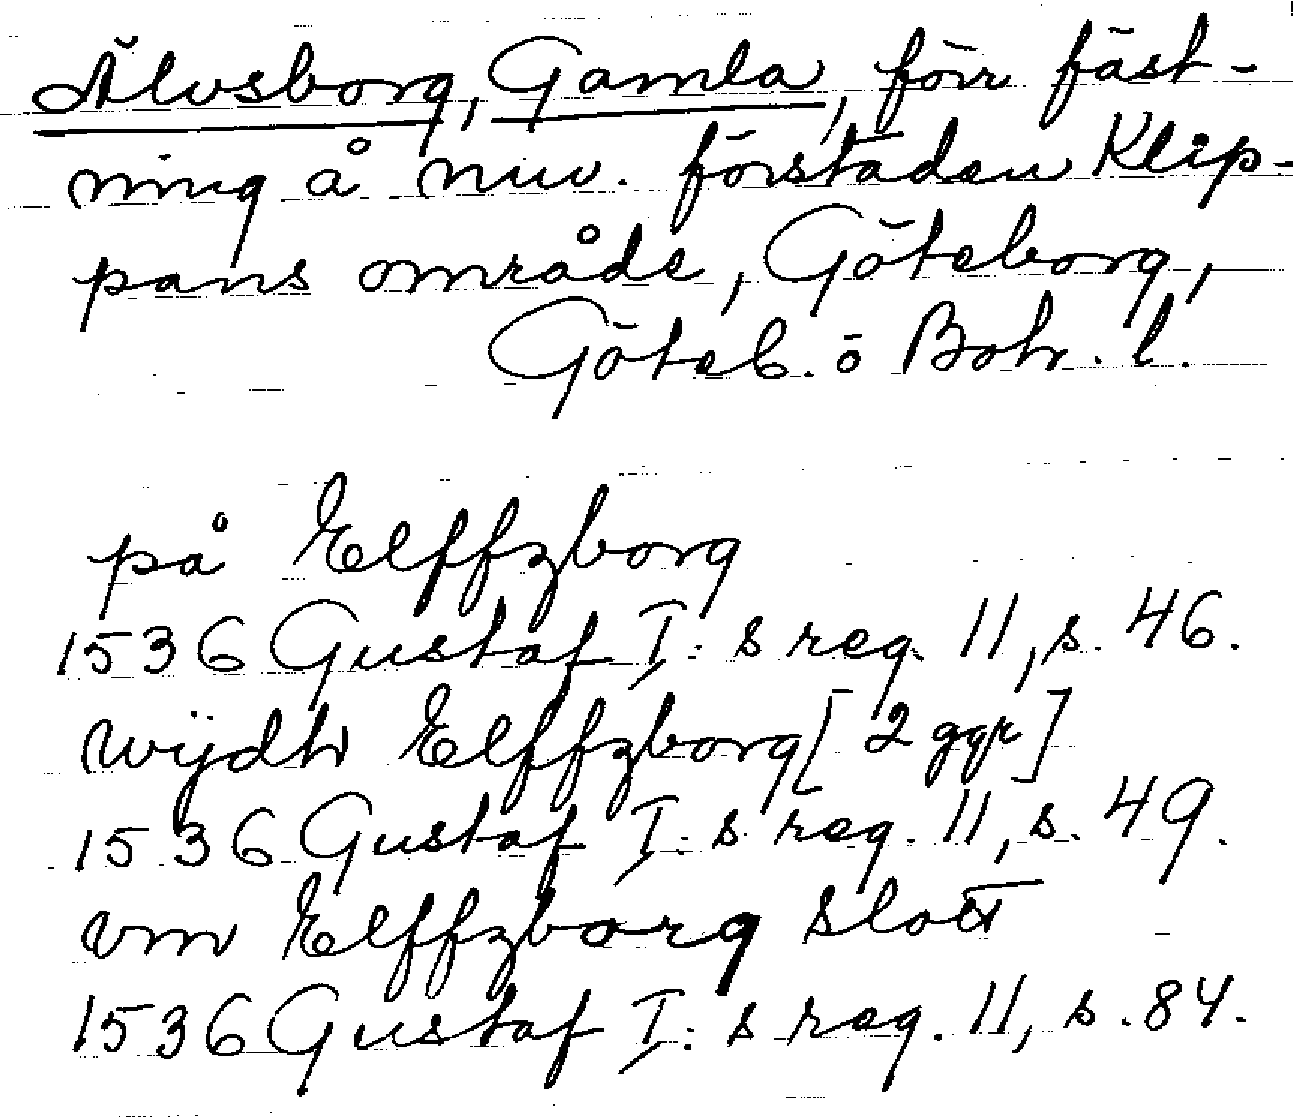 Älvsborg, Gamla, förr fäst-
ning å nuv. förstaden Klip-
pans område, Göteborg,
Göteb. o Boh. l.
på Elffzborg
1536 Gustaf I:s reg. 11, s. 46.
wijdh Elffzborg [2 ggr]
1536 Gustaf I:s reg. 11, s. 49.
vm Elffzborg slott
1536 Gustaf I:s reg. 11, s. 84.